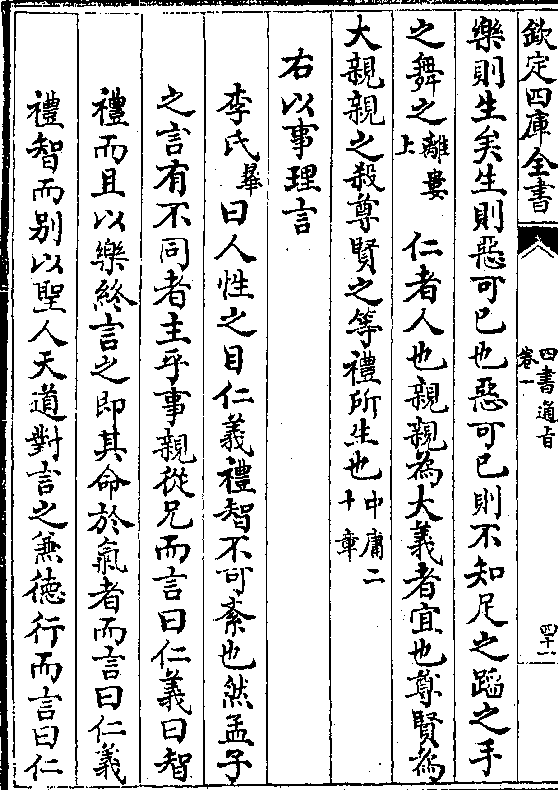 欽定四庫全書
四書通旨
卷一
四十一
樂則生矣生則惡可已也惡可已則不知足之蹈之手
之舞之離婁上 仁者人也親親為大義者宜也尊賢為
大親親之殺尊賢之等禮所生也中庸二十章
右以事理言
李氏曰人性之目仁義禮智不可紊也然孟子
之言有不同者主乎事親從兄而言曰仁義曰智
禮而且以樂終言之即其命於氣者而言曰仁義
禮智而别以聖人天道對言之兼德行而言曰仁